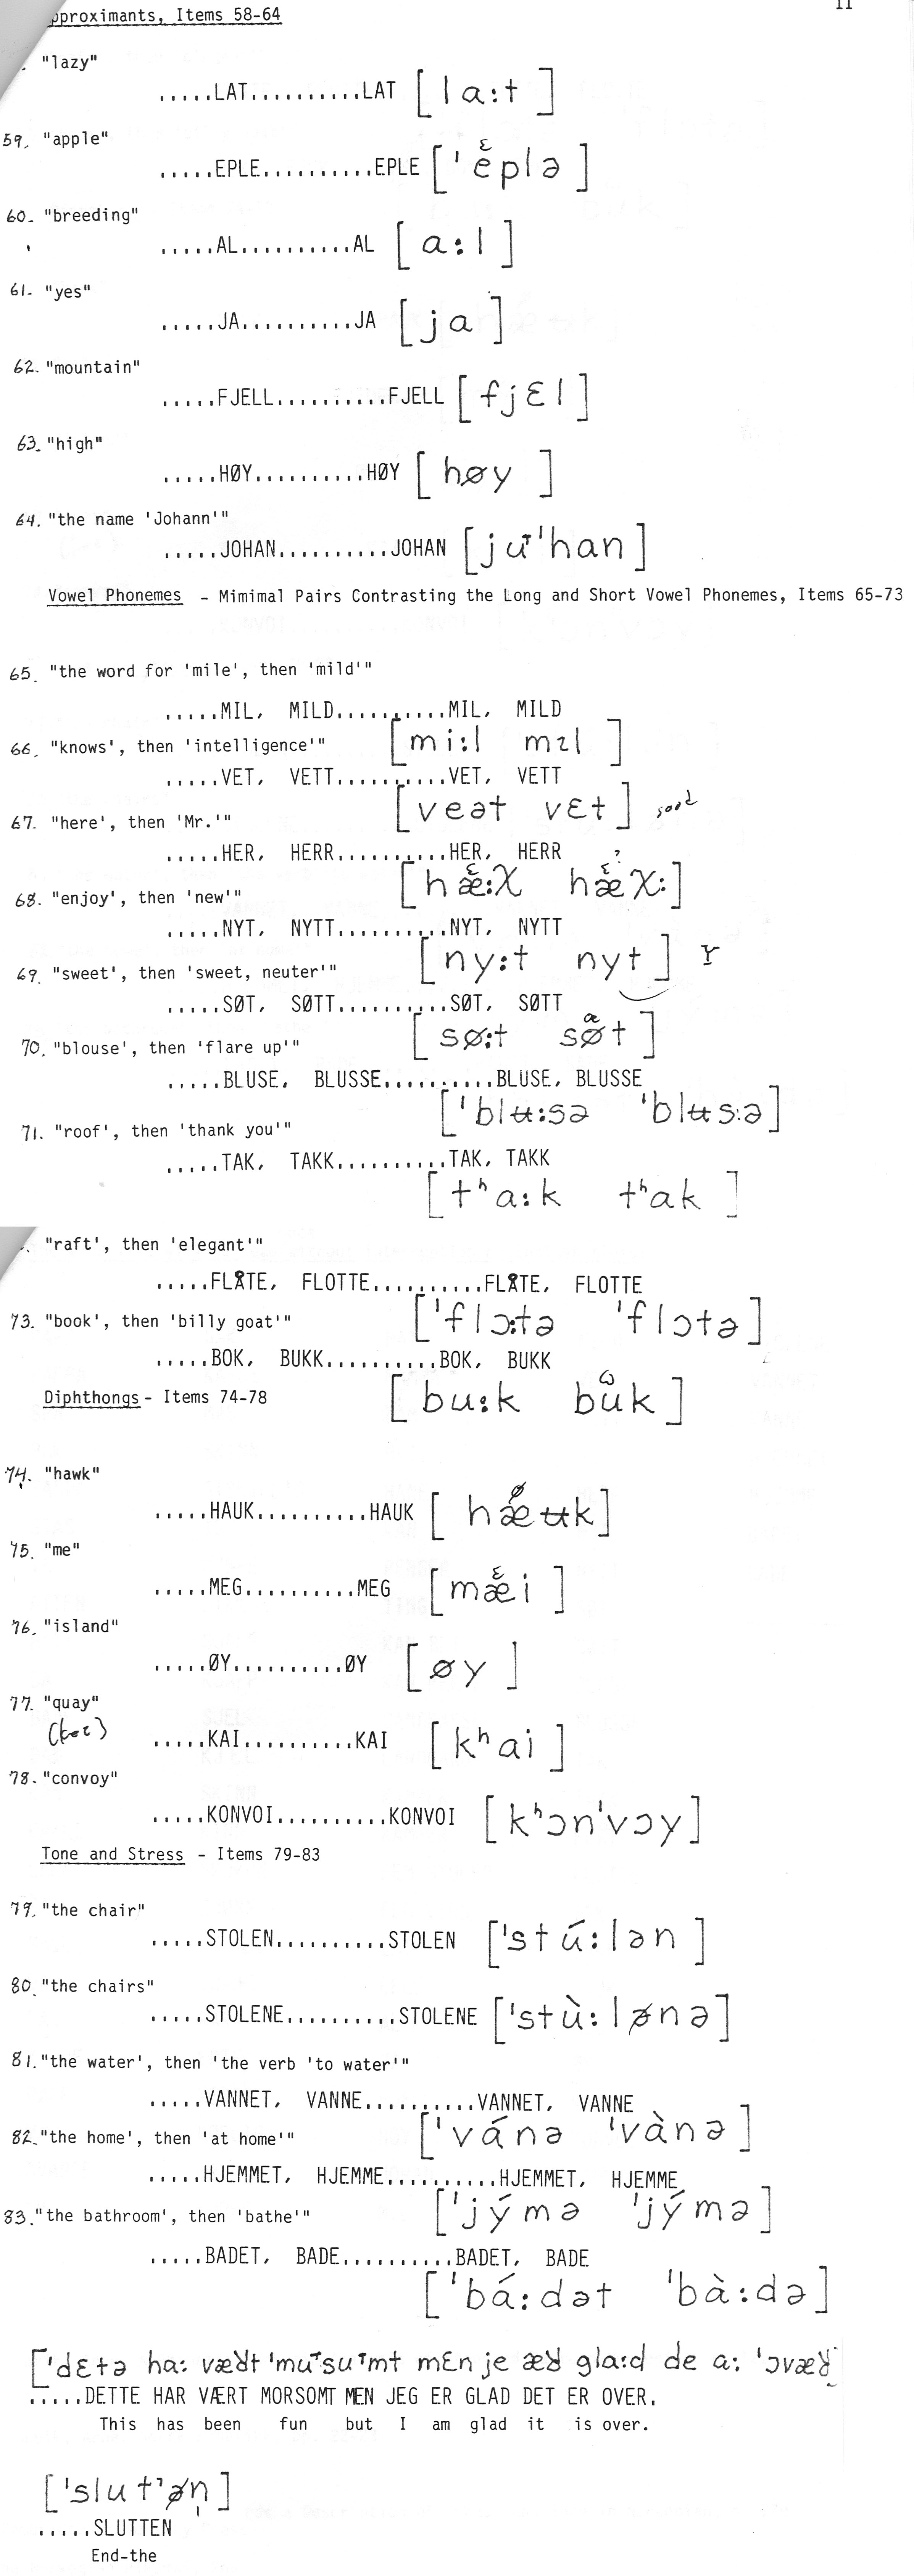 pproximants, Items 58-64
11
"lazy"
.....LAT..........LAT [la:t]
59. "apple"
.....EPLE..........EPLE ['ɛplə]
60. "breeding"
.....AL..........AL [a:l]
61. "yes"
.....JA..........JA [ja]
62. "mountain"
.....FJELL..........FJELL [fjɛl]
63. "high"
.....HØY..........HØY [høy]
64. "the name 'Johann'"
.....JOHAN..........JOHAN [ju'han]
Vowel Phonemes - Mimimal Pairs Contrasting the Long and Short Vowel Phonemes, Items 65-73
65. "the word for 'mile', then 'mild'"
.....MIL, MILD..........MIL, MILD
[mi:l mɪl]
66. "knows', then 'intelligence'"
.....VET, VETT..........VET, VETT
[veət vɛt]
67. "here', then 'Mr.'"
.....HER, HERR..........HER, HERR
[hæ:χ hæχ:]
68. "enjoy', then 'new'"
.....NYT, NYTT..........NYT, NYTT
[ny:t nyt] Y
69. "sweet', then 'sweet, neuter'"
.....SØT, SØTT..........SØT, SØTT
[sø:t søt]
70. "blouse', then 'flare up'"
.....BLUSE, BLUSSE..........BLUSE, BLUSSE
['blʉ:sə 'blʉs:ə]
71. "roof', then 'thank you'"
.....TAK, TAKK..........TAK, TAKK
[tʰa:k tʰak]
"raft', then 'elegant'"
.....FLÅTE, FLOTTE..........FLÅTE, FLOTTE
['flɔ:tə 'flɔtə]
73. "book', then 'billy goat'"
.....BOK, BUKK..........BOK, BUKK
[bu:k buk]
Diphthongs - Items 74-78
74. "hawk"
.....HAUK..........HAUK [hæʉk]
75. "me"
.....MEG..........MEG [mæi]
76. "island"
.....ØY..........ØY [øy]
77. "quay"
.....KAI..........KAI [kʰai]
78. "convoy"
.....KONVOI..........KONVOI [kʰɔn'vɔy]
Tone and Stress - Items 79-83
79. "the chair"
.....STOLEN..........STOLEN ['stú:lən]
80. "the chairs"
.....STOLENE..........STOLENE ['stù:lənə]
81. "the water', then 'the verb 'to water'"
.....VANNET, VANNE..........VANNET, VANNE
['vánə 'vànə]
82. "the home', then 'at home'"
.....HJEMMET, HJEMME..........HJEMMET, HJEMME
['jýmə 'jýmə]
83. "the bathroom', then 'bathe'"
.....BADET, BADE..........BADET, BADE
['bá:dət 'bà:də]
['dɛtə ha: væʁt 'mu's u'mt mɛn je æʁ gla:d de a: 'ɔvæʁ]
.....DETTE HAR VÆRT MORSOMT MEN JEG ER GLAD DET ER OVER.
This has been fun but I am glad it is over.
['slut'ən̩]
.....SLUTTEN
End-the